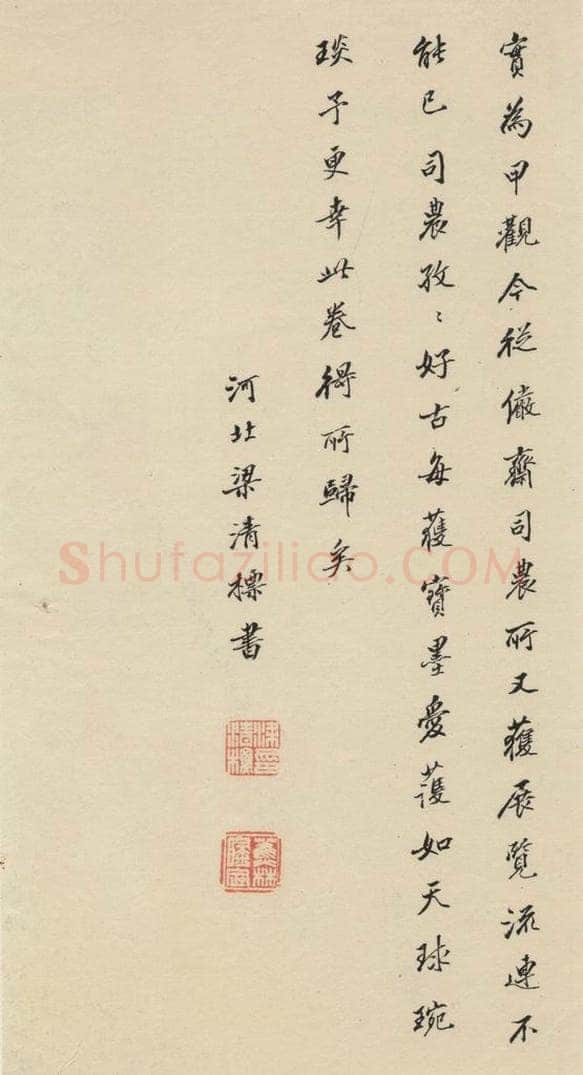 實為甲觀今從儼齋司農所又獲展覽流連不
能已司農孜〻好古每獲寶墨愛護如天球琬
琰予更幸此卷得所歸矣
河北梁清標書
Shufaziliao.COM
梁清標印
蕉林